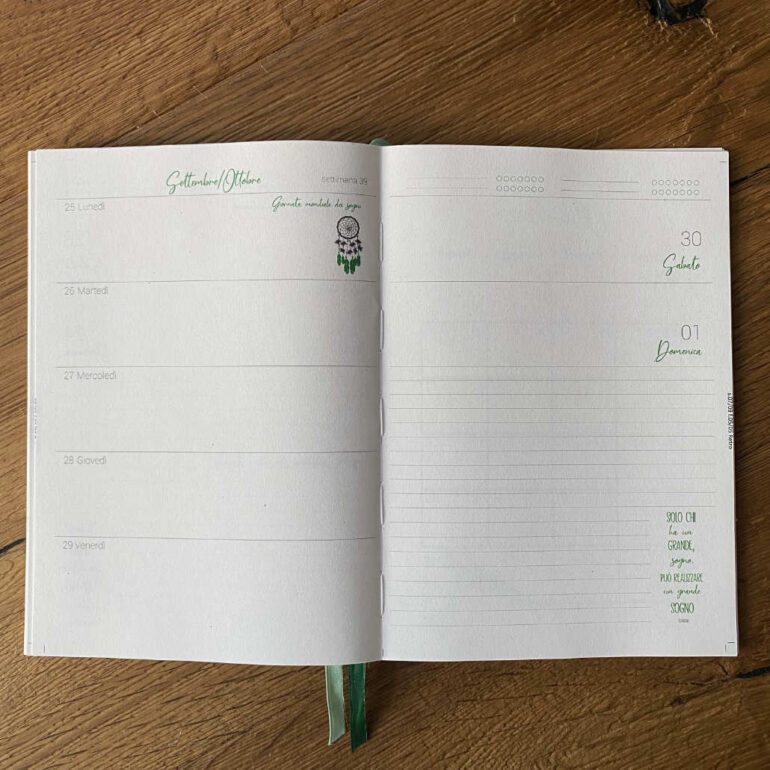 Settembre/Ottobre
settimana 39
25 Lunedì
Giornata mondiale dei sogni
26 Martedì
27 Mercoledì
28 Giovedì
29 Venerdì
30
Sabato
01
Domenica
SOLO CHI
ha un
GRANDE,
sogno,
PUÒ REALIZZARE
un grande
SOGNO